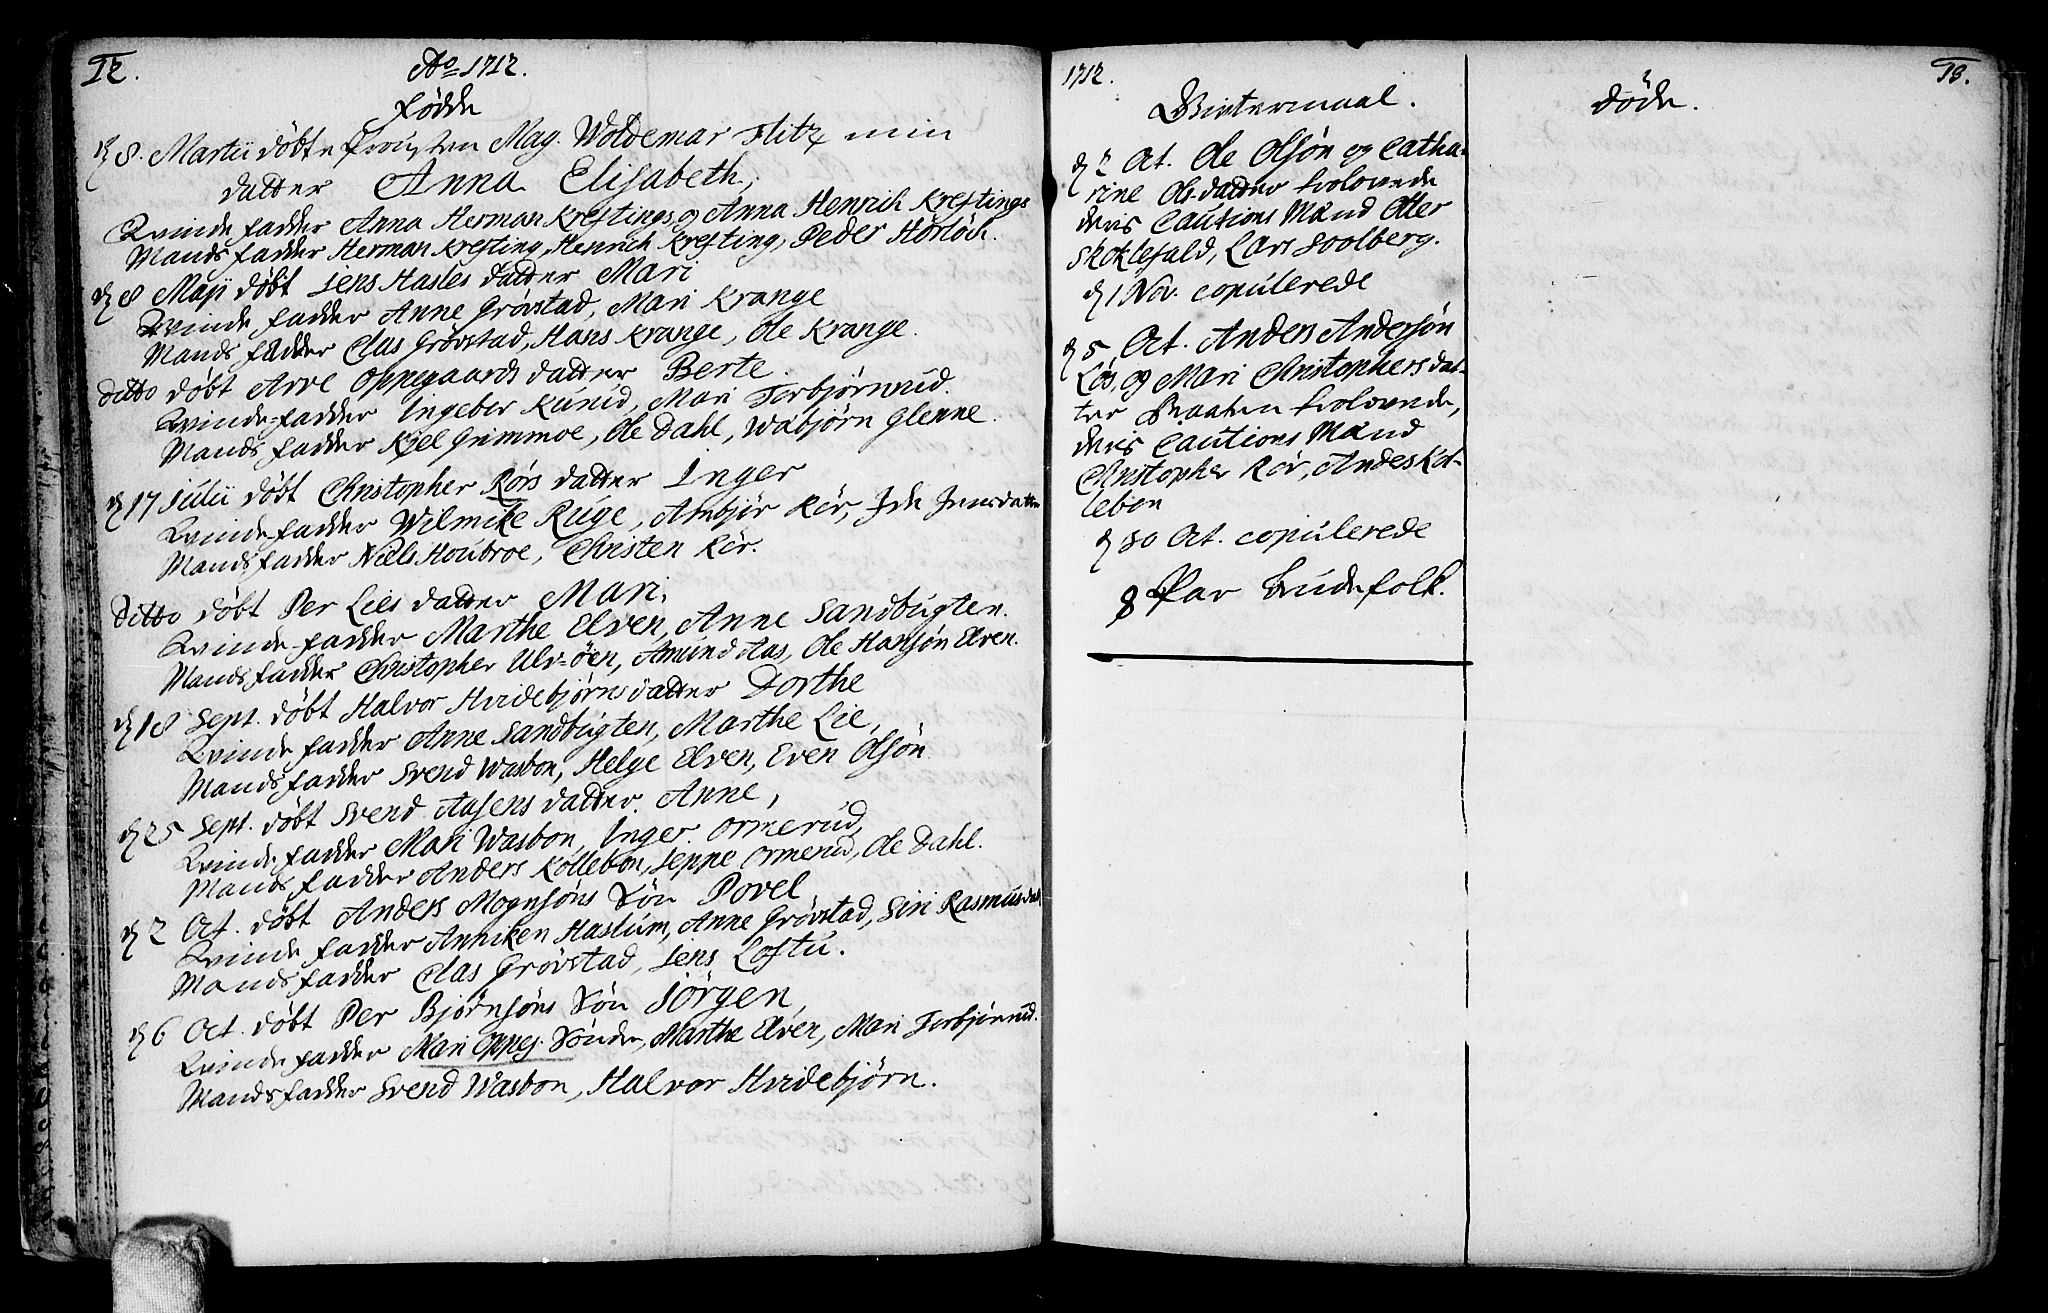 12.
Ao 1712.
Fødde
d 8. Martii døbte Provsten Mag. Woldemar Flitz min
datter Anna Elisabeth,
Qvinde fadder Anna Herman Kreftings og Anna Henrich Kreftings
Mands fadder Herman Krefting, Henrich Krefting, Peder Hörlöch.
d 8 Maji døbt Jens Hasles datter Mari
Qvinde fadder Anne Grövstad, Mari Krange
Mands fadder Clas Grövstad, Hans Krange, Ole Krange.
Ditto døbt Arve Oppegaards datter Berte.
Qvinde-fadder Ingebor Kurud, Mari Torbjörnrud.
Mands fadder Kjel Grimmoe, Ole Dahl, Wabjörn Glenne.
d 17 Julii døbt Christopher Rörs datter Inger
Qvinde-fadder Wilmike Ruge, Ambjör Rör, Ide Jensdatter
Mands fadder Niels Houbroe, Christen Rör.
Ditto døbt Per Lies datter Mari,
Qvinde-fadder Marthe Elven, Anne Sandbugten.
Mands fadder Christopher Ulv-öen, Amund Aas, Ole Hansön Elven.
d 18 Sept. døbt Halvor Hvidebjörns datter Dorthe
Qvinde fadder Anne Sandbugten, Marthe Lie,
Mands fadder Svend Wasbon, Helge Elven, Even Olsön
d 25 Sept. døbt Svend Aasens datter Anne,
Qvinde fadder Mari Wasbon, Inger Ormerud,
Mands fadder Anders Kollebon, Jeppe Ormerud, Ole Dahl.
d 2 Oct. døbt Anders Mognsöns Sön Povel
Qvinde fadder Anniken Haslum, Anne Grövstad, Siri Rasmusdat
Mands fadder Clas Grövstad, Jens Loftu.
d 6 Oct. døbt Per Björnsöns Sön Jörgen,
Qvinde fadder Mari Oppeg. Söndre, Marthe Elven, Mari Torbjörnrud.
Mands fadder Svend Wasbon, Halvor Hvidebjörn.
1712.
Bintermaal.
d 2 Oct. Ole Olsön og Catha-
rine Ols-datter trolovede
deris Cautions Mænd Otter
Skoklefald, Lars Soolberg.
d 1 Nov. copulerede
d 5 Oct. Anders Andersön
Løs, og Mari Christophers dat-
ter Braaten trolovede,
deris Cautions Mænd
Christopher Rör, Andes Kol-
lebon
d 30 Oct. copulerede
8 Par brudefolk.
13.
Døde.